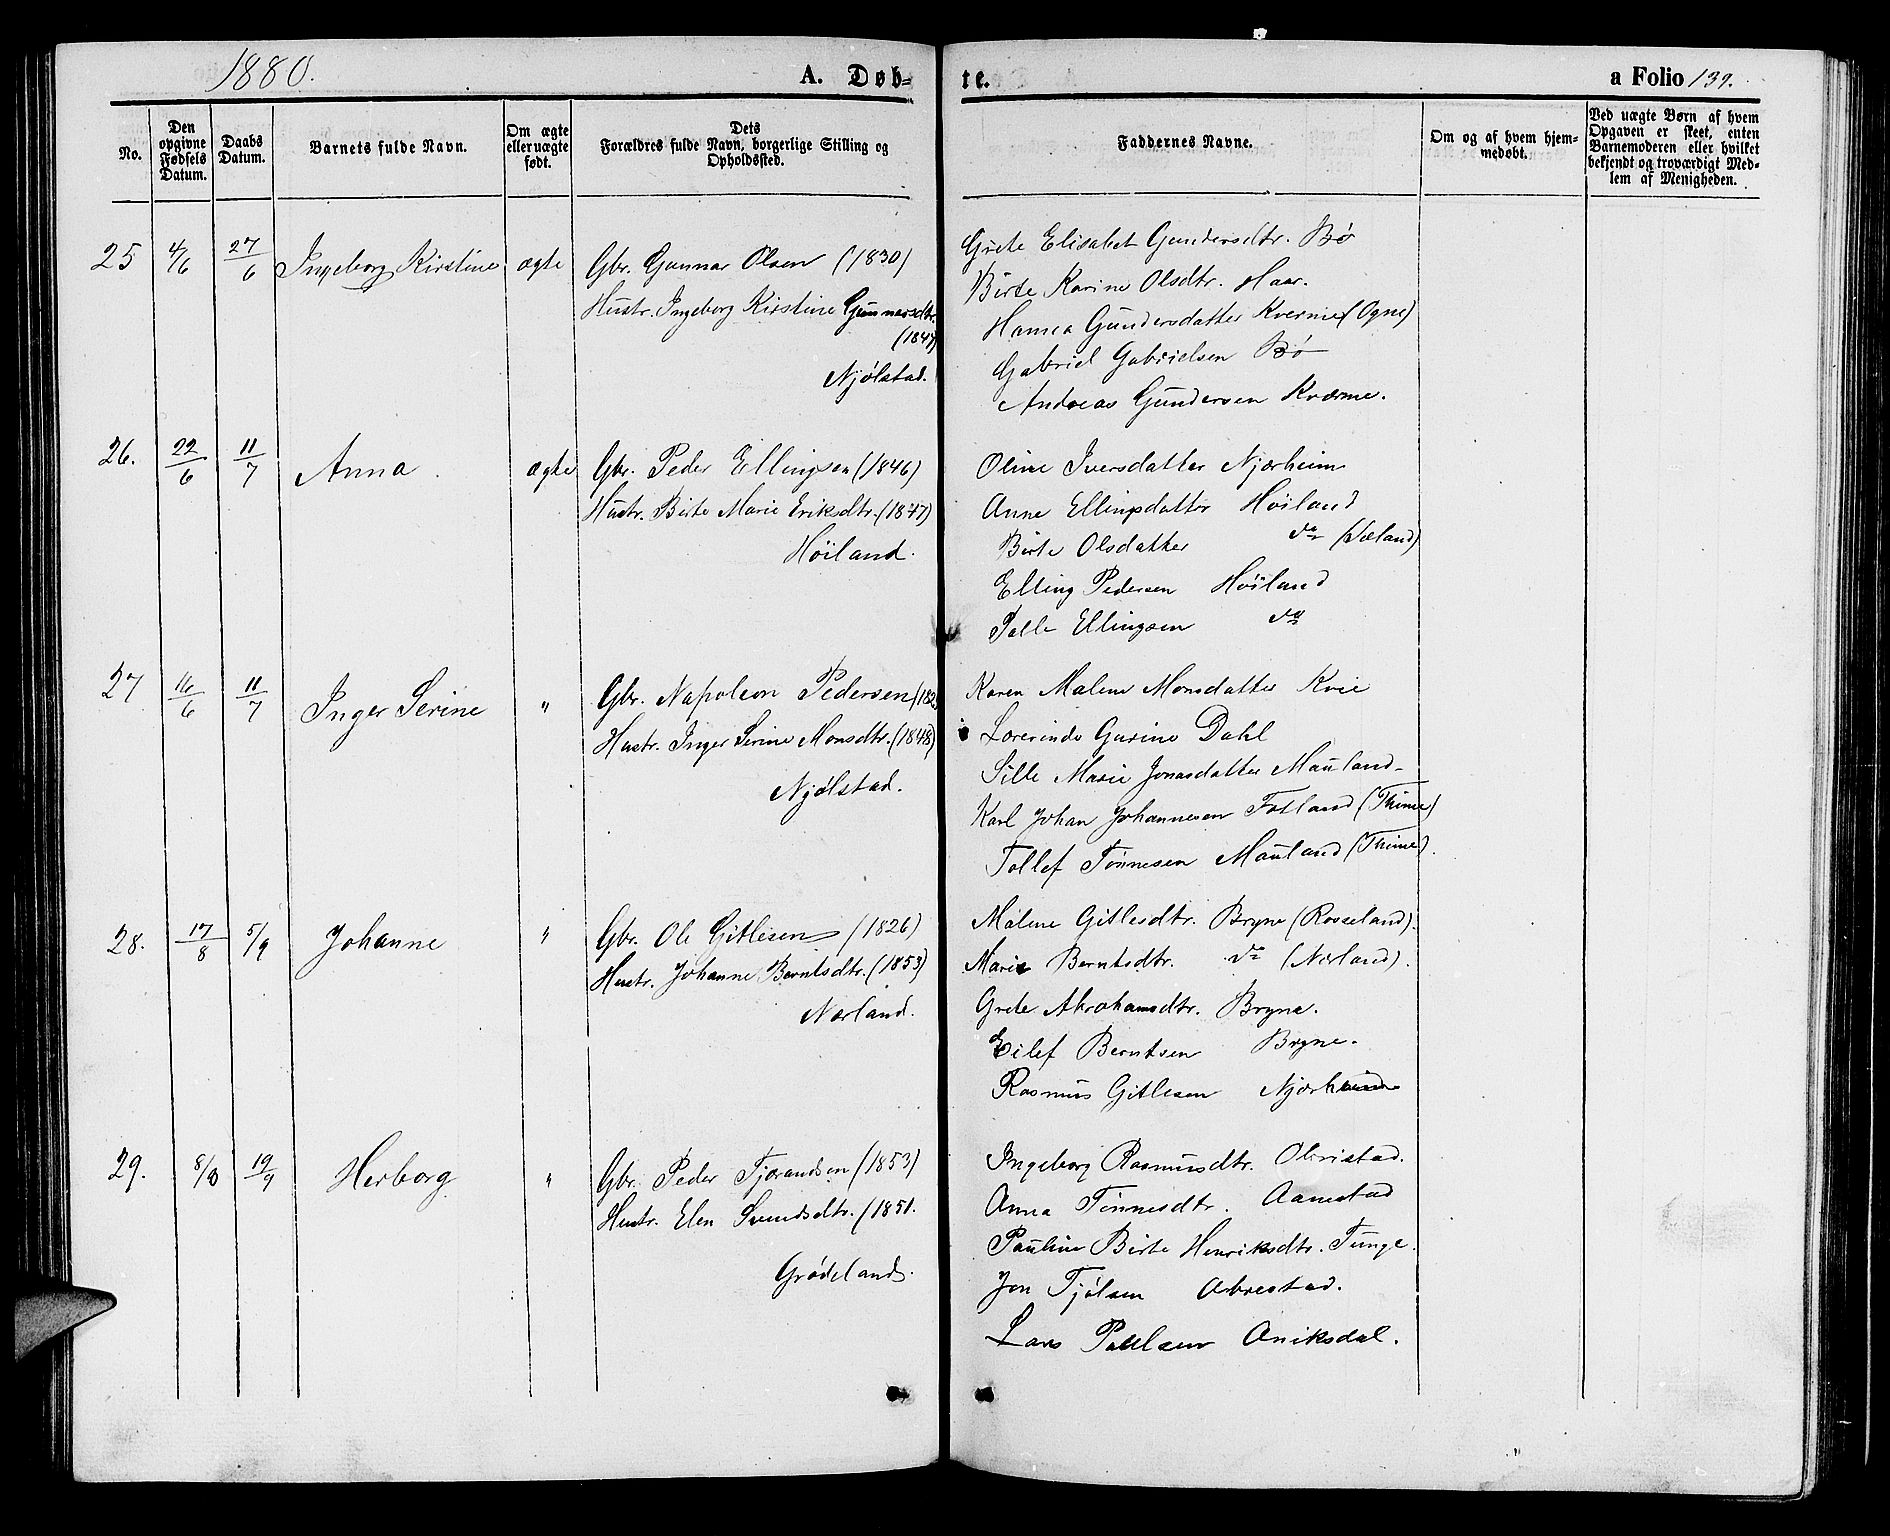 1880.
A. Døb-
te.
a Folio 139.
No.
Den opgivne Fødsels Datum.
Daabs Datum.
Barnets fulde Navn.
Om ægte eller uægte født.
Dets Forældres fulde Navn, borgerlige Stilling og Opholdssted.
Faddernes Navne.
Om og af hvem hjemmedøbt.
Ved uægte Børn af hvem Opgaven er skeet, enten Barnemoderen eller hvilket bekjendt og troværdigt Medlem af Menigheden.
25 4/6 27/6 Ingeborg Kirstine ægte Gbr. Gunnar Olsen (1830)
Hustr. Ingeborg Kirstine Gunnarsdtr.
(1847)
Njølstad.
Grete Elisabet Gundersdtr. Bø
Birte Karine Olsdtr. Haar.
Hanna Gundersdatter Kverme (Ogne)
Gabriel Gabrielsen Bø
Andreas Gundersen Kværme.
26. 22/6 11/7 Anna. ægte Gbr. Peder Ellingsen (1846)
Hustr. Birte Marie Eriksdtr. (1847)
Høiland.
Oline Iversdatter Njærheim
Anne Ellingsdatter Høiland
Birte Olsdatter do (Væland)
Elling Pedersen Høiland
Palle Ellingsen do
27 16/6 11/7 Inger Serine " Gbr. Napoleon Pedersen (182
Hustr. Inger Serine Monsdtr. (1848)
Njølstad.
Karen Malene Monsdatter Kvie
Lærerinde Gusine Dahl
Sille Marie Jonasdatter Mauland
Karl Johan Johannesen Fotland (Thime)
Tollef Tønnesen Mauland (Thime).
28. 17/8 5/9 Johanne " Gbr. Ole Gitlesen (1826)
Hustr. Johanne Berntsdtr. (1853)
Nærland.
Malene Gitlesdtr. Bryne (Rosseland).
Marie Berntsdtr. do (Nærland).
Grete Abrahamsdtr. Bryne.
Eilef Berntsen Bryne.
Rasmus Gitlesen Njærheim
29. 8/8 19/9 Herborg " Gbr. Peder Tjørandsen (1853)
Hustr. Elen Svendsdtr. (1851.
Grødeland.
Ingeborg Rasmusdtr. Obristad.
Anna Tønnesdtr. Aanestad
Pauline Birte Henriksdtr. Tunge.
Jon Tjølsen Obrestad.
Lars Paulsen Aniksdal.